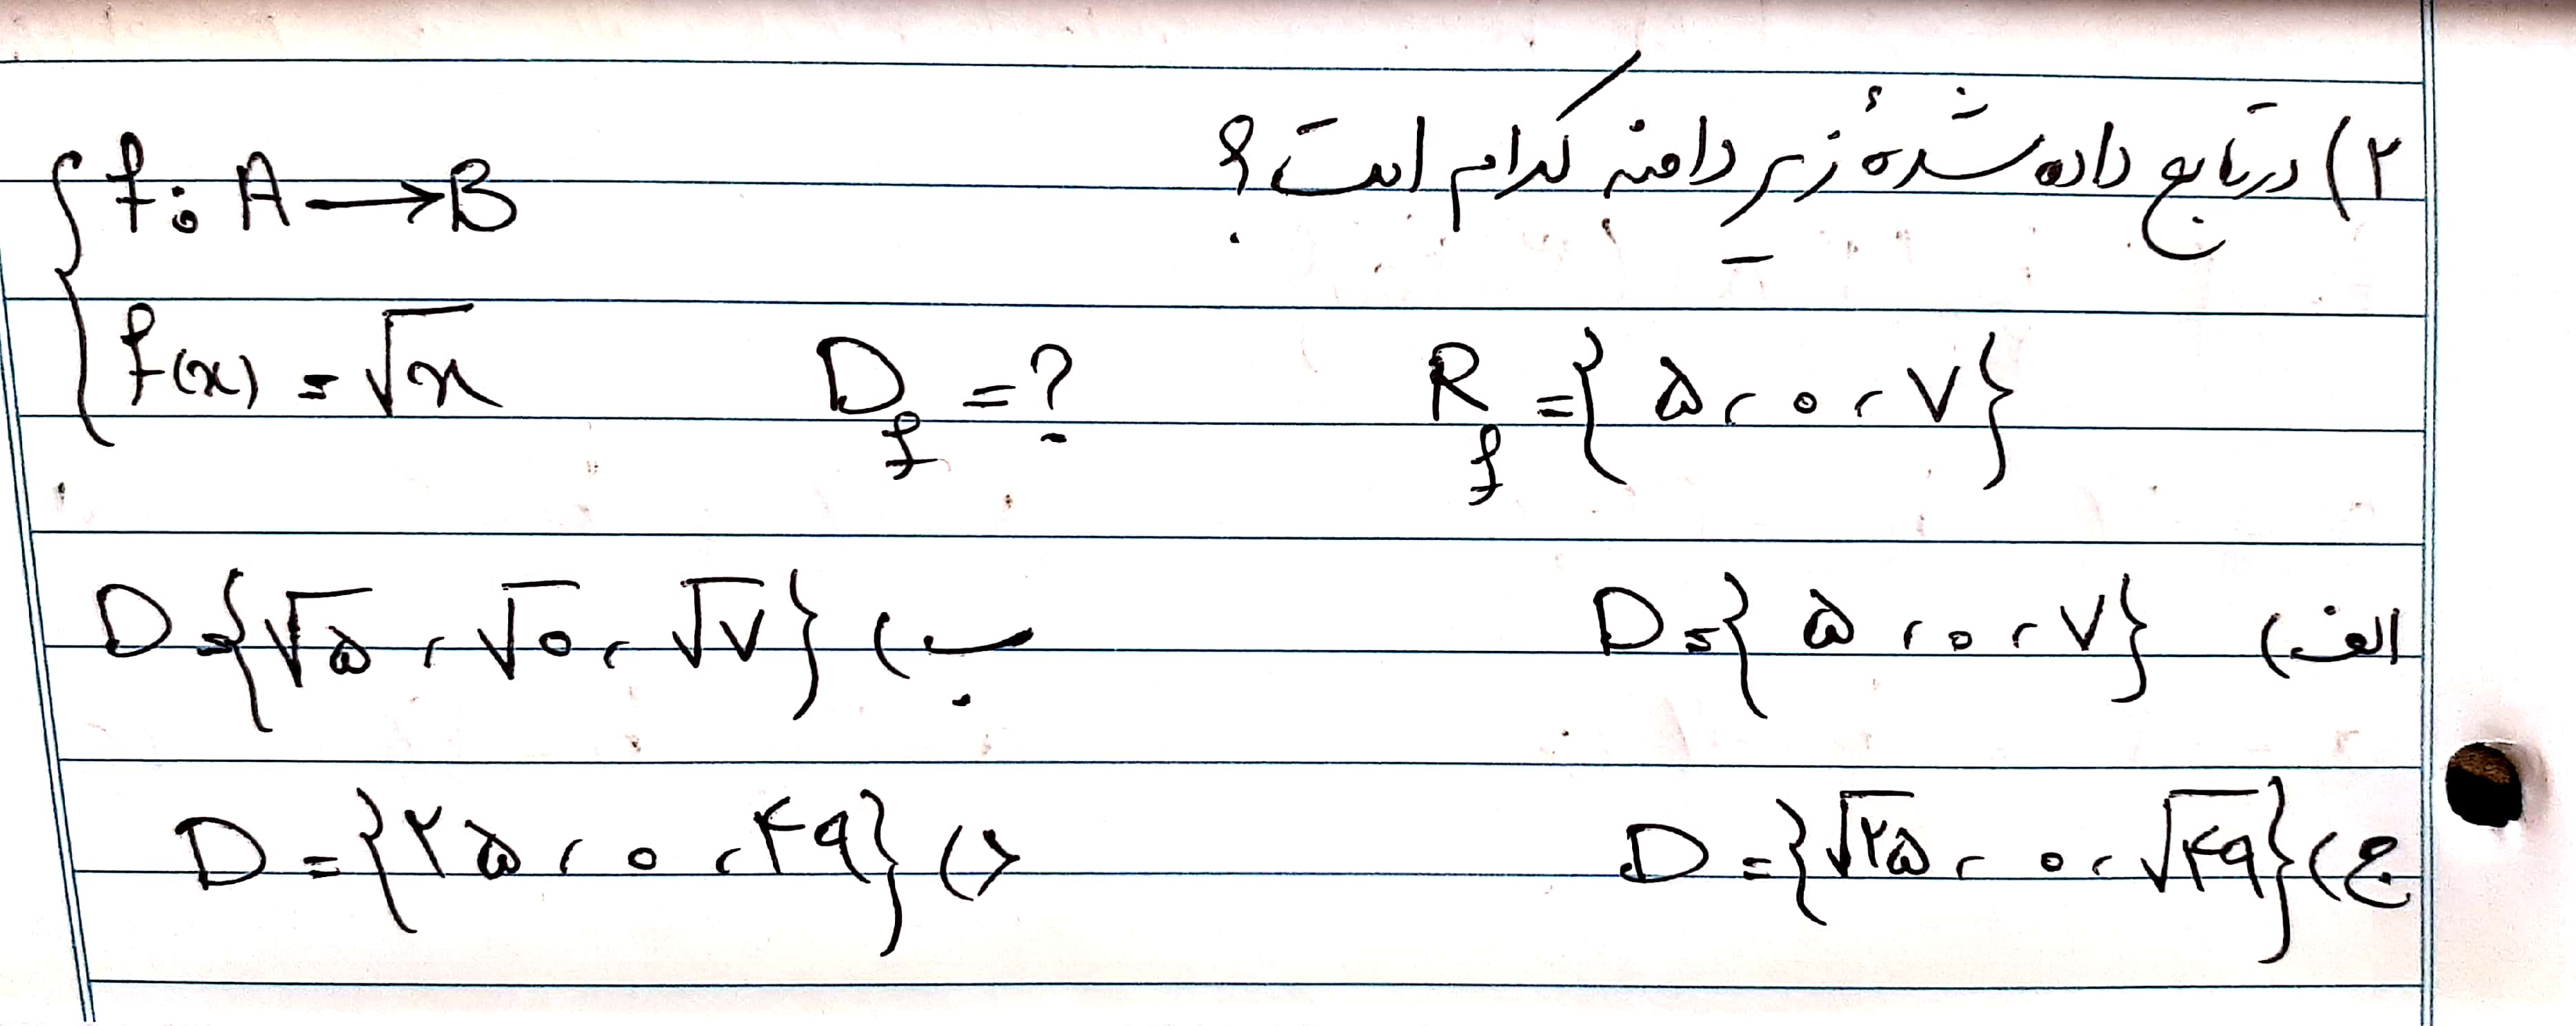 ۲) در تابع داده شدهٔ زیر دامنه کدام است؟
f: A → B
f(x) = √x   D_f = ?   R_f = {۵ ، ۰ ، ۷}
الف) D = {۵ ، ۰ ، ۷}   ب) D = {√۵ ، √۰ ، √۷}
ج) D = {√۲۵ ، ۰ ، √۴۹}   د) D = {۲۵ ، ۰ ، ۴۹}